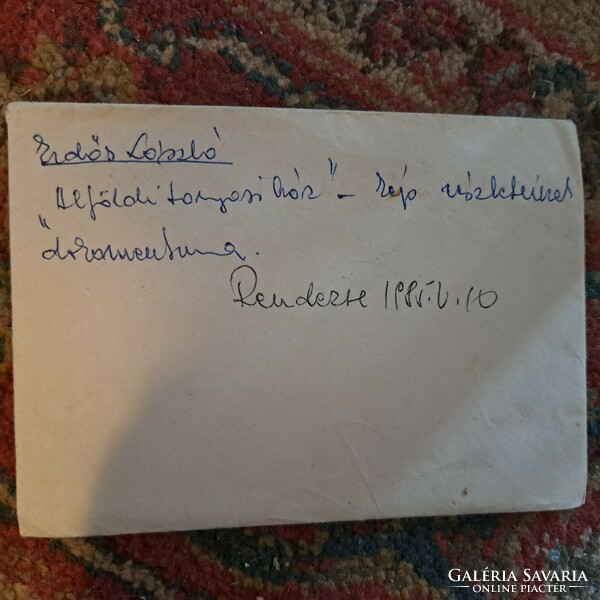 Erdős László
"Alföldi tanyasi ház" – rajz
dokumentuma.
Rendezte 1985.V.10
GALÉRIA SAVARIA
ONLINE PIACTÉR